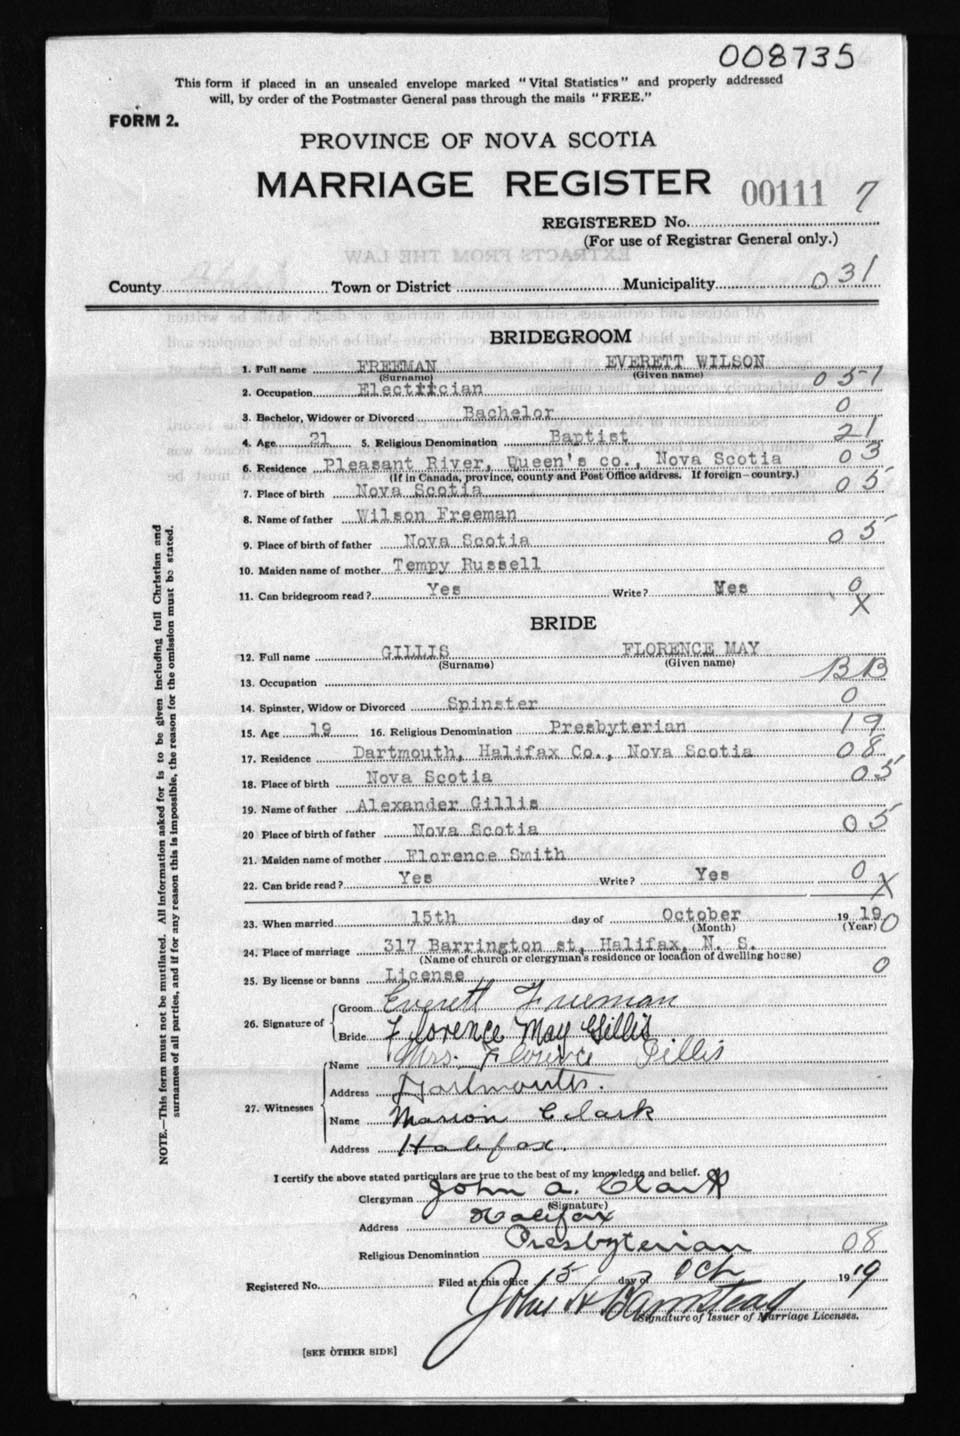 008735
This form if placed in an unsealed envelope marked "Vital Statistics" and properly addressed
will, by order of the Postmaster General pass through the mails "FREE."
FORM 2.
PROVINCE OF NOVA SCOTIA
MARRIAGE REGISTER 00111 7
REGISTERED No.
(For use of Registrar General only.)
EXTRACTS FROM THE LAW
County Town or District Municipality 031
BRIDEGROOM
1. Full name FREEMAN EVERETT WILSON
(Surname) (Given name)
2. Occupation Electrician 051
3. Bachelor, Widower or Divorced Bachelor 0
4. Age 21 5. Religious Denomination Baptist 21
6. Residence Pleasant River, Queen's co., Nova Scotia 03
(If in Canada, province, county and Post Office address. If foreign—country.)
7. Place of birth Nova Scotia 05
8. Name of father Wilson Freeman
9. Place of birth of father Nova Scotia 05
10. Maiden name of mother Tempy Russell
11. Can bridegroom read? Yes Write? Yes 0
X
BRIDE
12. Full name GILLIS FLORENCE MAY
(Surname) (Given name)
13. Occupation BB
14. Spinster, Widow or Divorced Spinster 0
15. Age 19 16. Religious Denomination Presbyterian 19
17. Residence Dartmouth, Halifax Co., Nova Scotia 08
18. Place of birth Nova Scotia 05
19. Name of father Alexander Gillis
20 Place of birth of father Nova Scotia 05
21. Maiden name of mother Florence Smith
22. Can bride read? Yes Write? Yes 0
X
23. When married 15th day of October 19 19 0
(Month) (Year)
24. Place of marriage 317 Barrington st, Halifax, N. S.
(Name of church or clergyman's residence or location of dwelling house)
25. By license or banns License 0
26. Signature of Groom Everett Freeman
Bride Florence May Gillis
27. Witnesses Name Mrs. Florence Gillis
Address Dartmouth.
Name Marion Clark
Address Halifax.
I certify the above stated particulars are true to the best of my knowledge and belief.
Clergyman John A. Clark
(Signature)
Address Halifax
Religious Denomination Presbyterian 08
Registered No. Filed at this office 15 day of Oct 19 19
John H Barnstead
Signature of Issuer of Marriage Licenses.
[SEE OTHER SIDE]
NOTE.—This form must not be mutilated. All information asked for is to be given including full Christian and
surnames of all parties, and if for any reason this is impossible, the reason for the omission must be stated.